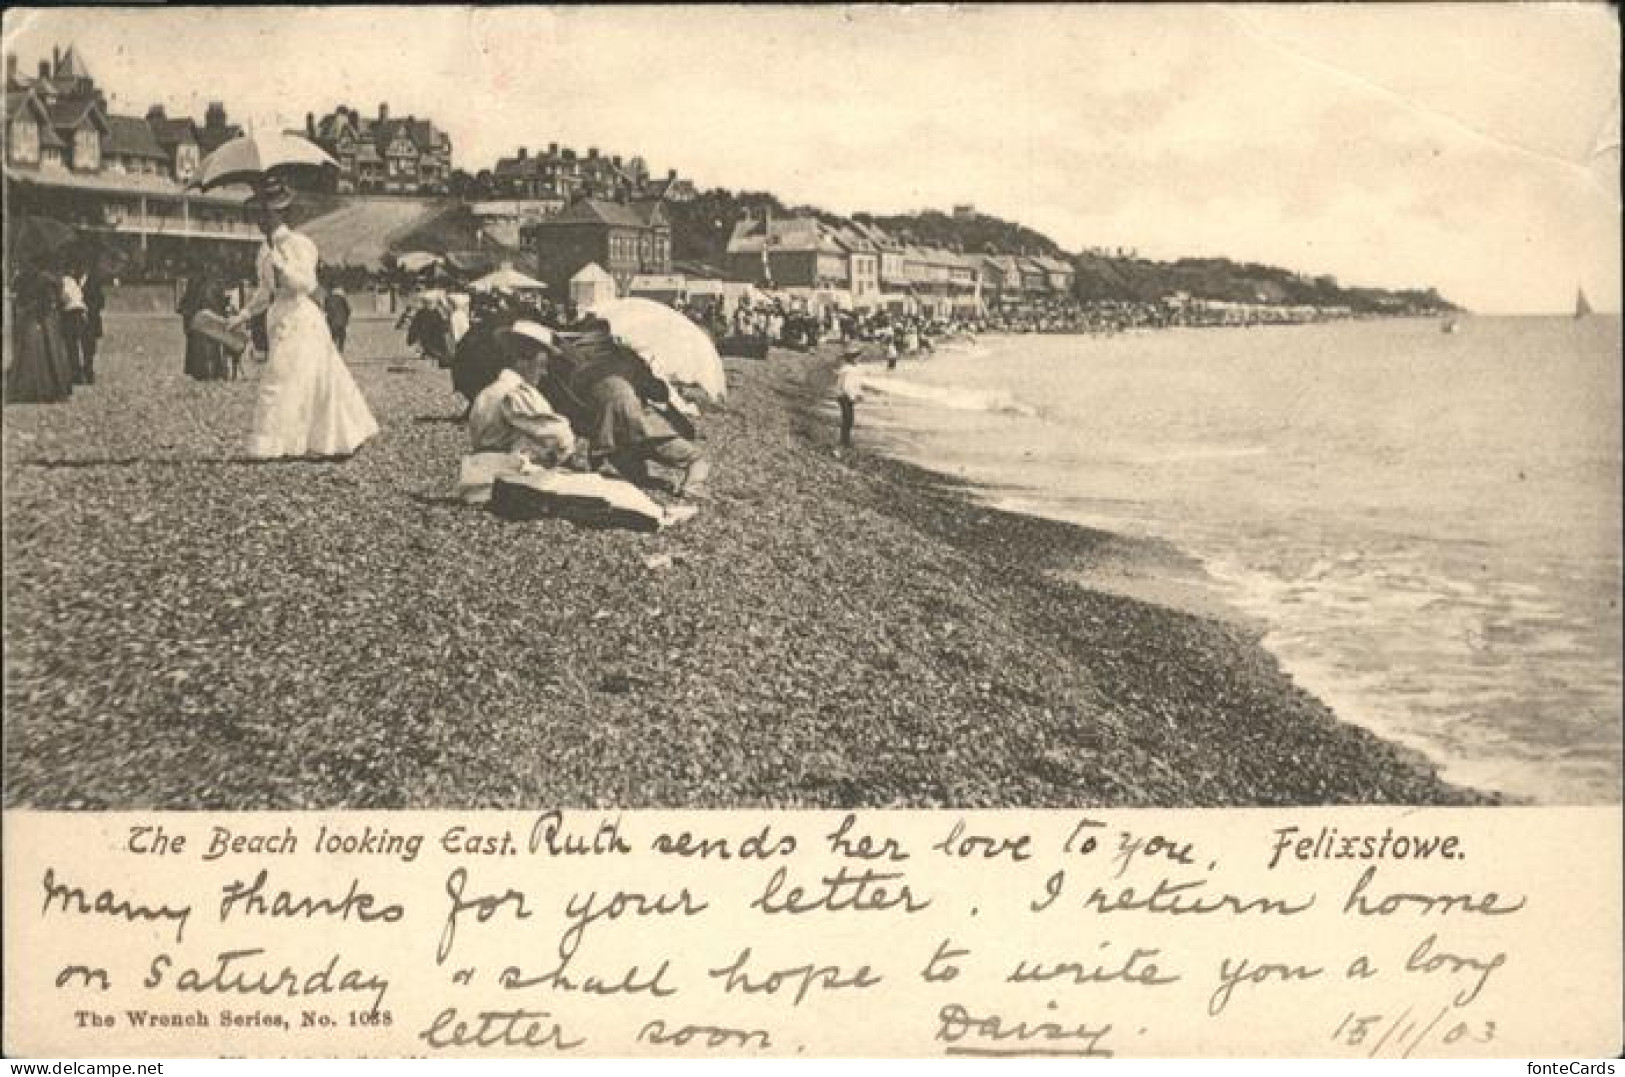 The Beach looking East. Ruth sends her love to you. Felixstowe.
Many thanks for your letter. I return home
on Saturday & shall hope to write you a long
The Wrench Series, No. 
letter soon. Daisy. 15/1/03
delcampe.net
fonteCards